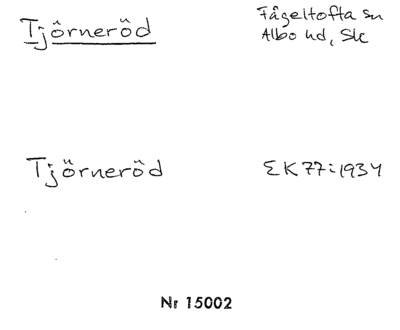 Tjörneröd
Fågeltofta sn
Albo hd, Sk
Tjörneröd
EK77:1934
Nr 15002